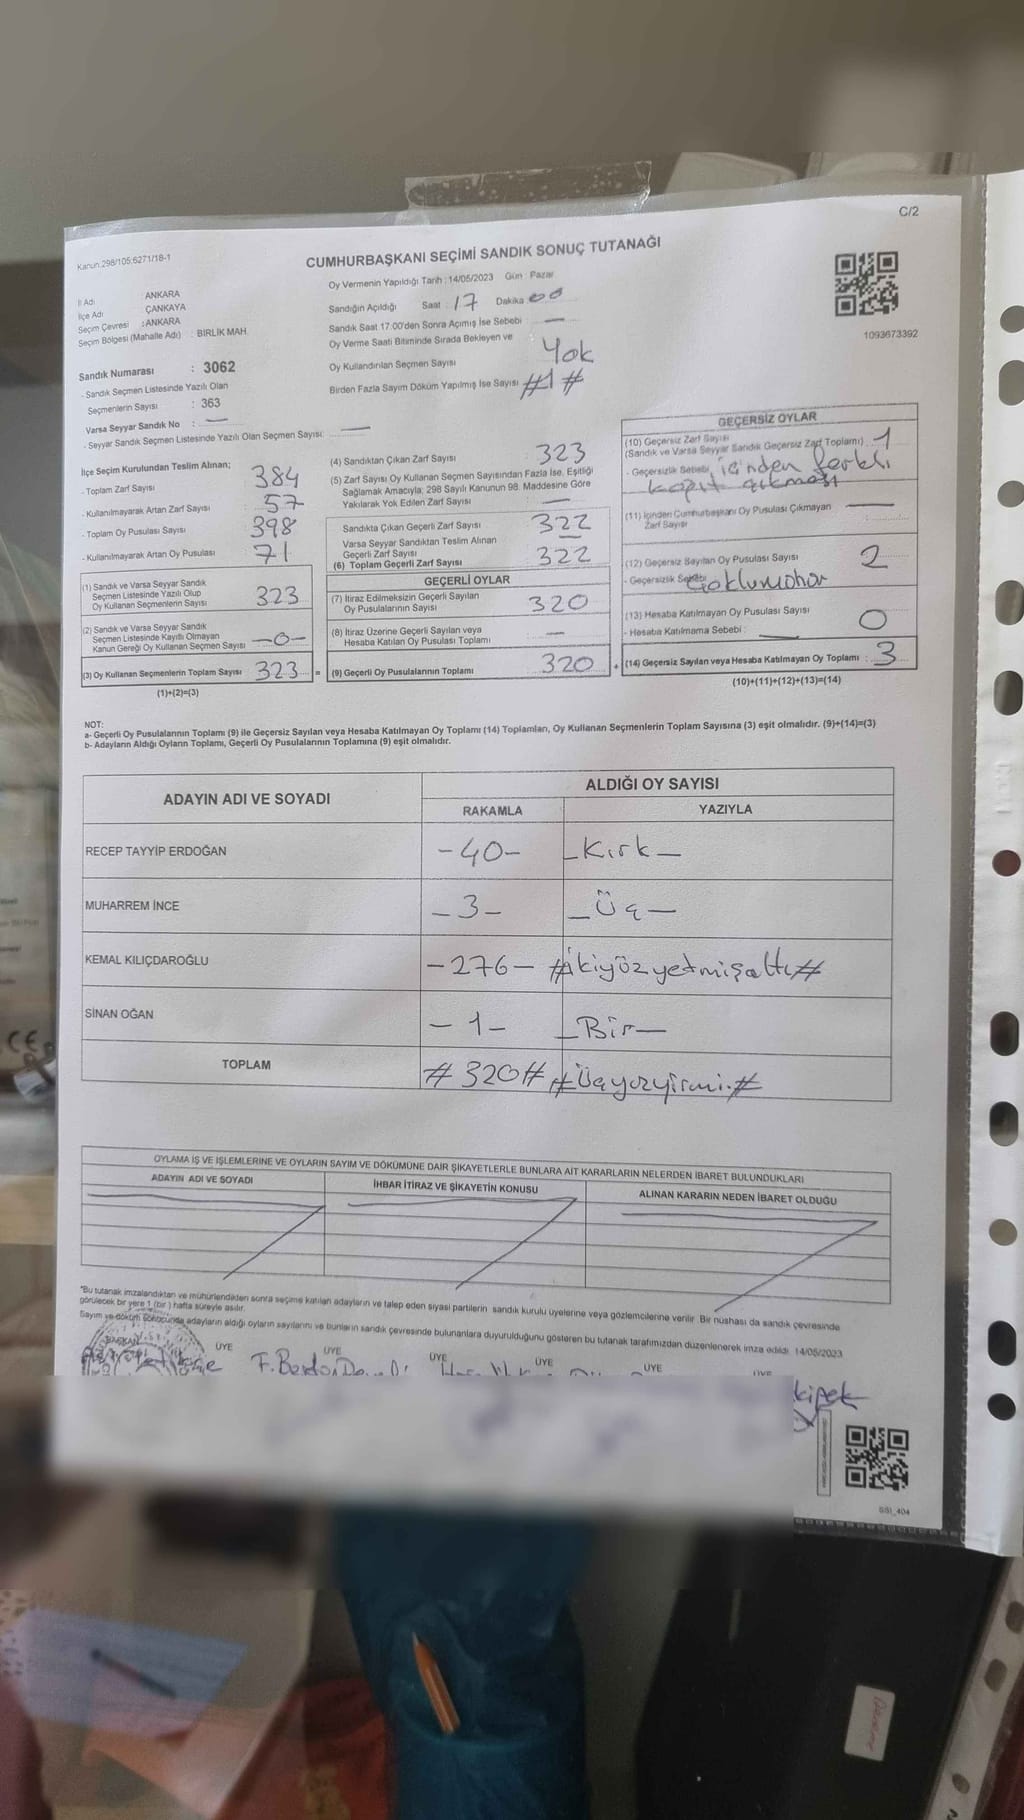 C/2
Kanun:298/105;6271/18-1
CUMHURBAŞKANI SEÇİMİ SANDIK SONUÇ TUTANAĞI
İl Adı ANKARA
İlçe Adı ÇANKAYA
Seçim Çevresi :ANKARA
Seçim Bölgesi (Mahalle Adı) : BİRLİK MAH.
Oy Vermenin Yapıldığı Tarih : 14/05/2023 Gün : Pazar
Sandığın Açıldığı Saat : 17 Dakika 00
Sandık Saat 17:00'den Sonra Açımış İse Sebebi : —
Oy Verme Saati Bitiminde Sırada Bekleyen ve
Oy Kullandırılan Seçmen Sayısı Yok
Birden Fazla Sayım Döküm Yapılmış İse Sayısı #1#
1093673392
Sandık Numarası : 3062
- Sandık Seçmen Listesinde Yazılı Olan
Seçmenlerin Sayısı : 363
Varsa Seyyar Sandık No : —
- Seyyar Sandık Seçmen Listesinde Yazılı Olan Seçmen Sayısı: —
İlçe Seçim Kurulundan Teslim Alınan;
- Toplam Zarf Sayısı 384
- Kullanılmayarak Artan Zarf Sayısı 57
- Toplam Oy Pusulası Sayısı 398
- Kullanılmayarak Artan Oy Pusulası 71
(1) Sandık ve Varsa Seyyar Sandık
Seçmen Listesinde Yazılı Olup
Oy Kullanan Seçmenlerin Sayısı 323
(2) Sandık ve Varsa Seyyar Sandık
Seçmen Listesinde Kayıtlı Olmayan
Kanun Gereği Oy Kullanan Seçmen Sayısı —0—
(3) Oy Kullanan Seçmenlerin Toplam Sayısı 323 =
(1)+(2)=(3)
(4) Sandıktan Çıkan Zarf Sayısı 323
(5) Zarf Sayısı Oy Kullanan Seçmen Sayısından Fazla İse, Eşitliği
Sağlamak Amacıyla; 298 Sayılı Kanunun 98. Maddesine Göre
Yakılarak Yok Edilen Zarf Sayısı —
Sandıkta Çıkan Geçerli Zarf Sayısı 322
Varsa Seyyar Sandıktan Teslim Alınan
Geçerli Zarf Sayısı —
(6) Toplam Geçerli Zarf Sayısı 322
GEÇERLİ OYLAR
(7) İtiraz Edilmeksizin Geçerli Sayılan
Oy Pusulalarının Sayısı 320
(8) İtiraz Üzerine Geçerli Sayılan veya
Hesaba Katılan Oy Pusulası Toplamı —
(9) Geçerli Oy Pusulalarının Toplamı 320 +
GEÇERSİZ OYLAR
(10) Geçersiz Zarf Sayısı
(Sandık ve Varsa Seyyar Sandık Geçersiz Zarf Toplamı) 1
- Geçersizlik Sebebi içinden farklı
kağıt çıkması
(11) İçinden Cumhurbaşkanı Oy Pusulası Çıkmayan
Zarf Sayısı —
(12) Geçersiz Sayılan Oy Pusulası Sayısı 2
- Geçersizlik Sebebi Çoklumühür
(13) Hesaba Katılmayan Oy Pusulası Sayısı 0
- Hesaba Katılmama Sebebi : —
(14) Geçersiz Sayılan veya Hesaba Katılmayan Oy Toplamı : 3
(10)+(11)+(12)+(13)=(14)
NOT:
a- Geçerli Oy Pusulalarının Toplamı (9) ile Geçersiz Sayılan veya Hesaba Katılmayan Oy Toplamı (14) Toplamları, Oy Kullanan Seçmenlerin Toplam Sayısına (3) eşit olmalıdır. (9)+(14)=(3)
b- Adayların Aldığı Oyların Toplamı, Geçerli Oy Pusulalarının Toplamına (9) eşit olmalıdır.
ADAYIN ADI VE SOYADI ALDIĞI OY SAYISI
RAKAMLA YAZIYLA
RECEP TAYYİP ERDOĞAN -40- -Kırk-
MUHARREM İNCE -3- -Üç-
KEMAL KILIÇDAROĞLU -276- #ikiyüzyetmişaltı#
SİNAN OĞAN -1- -Bir-
TOPLAM #320# #Üçyüzyirmi.#
OYLAMA İŞ VE İŞLEMLERİNE VE OYLARIN SAYIM VE DÖKÜMÜNE DAİR ŞİKAYETLERLE BUNLARA AİT KARARLARIN NELERDEN İBARET BULUNDUKLARI
ADAYIN ADI VE SOYADI İHBAR İTİRAZ VE ŞİKAYETİN KONUSU ALINAN KARARIN NEDEN İBARET OLDUĞU
"Bu tutanak imzalandıktan ve mühürlendikten sonra seçime katılan adayların ve talep eden siyasi partilerin sandık kurulu üyelerine veya gözlemcilerine verilir. Bir nüshası da sandık çevresinde
görülecek bir yere 1 (bir ) hafta süreyle asılır.
Sayım ve döküm sonucunda adayların aldığı oyların sayılarını ve bunların sandık çevresinde bulunanlara duyurulduğunu gösteren bu tutanak tarafımızdan düzenlenerek imza edildi. 14/05/2023
BAŞKAN ÜYE ÜYE ÜYE ÜYE ÜYE ÜYE
SSI_404
CE